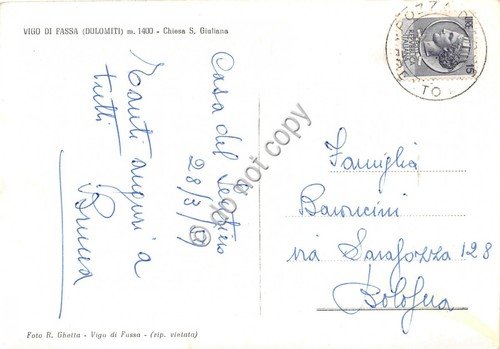 VIGO DI FASSA (DOLOMITI) m. 1400 - Chiesa S. Giuliana
Casa del
28/3/59
Tanti auguri a
tutti
Bruna
Famiglia
Baroncini
via Saragozza 128
Bologna
15
TO
do not copy
Foto R. Ghetta - Vigo di Fassa - (rip. vietata)